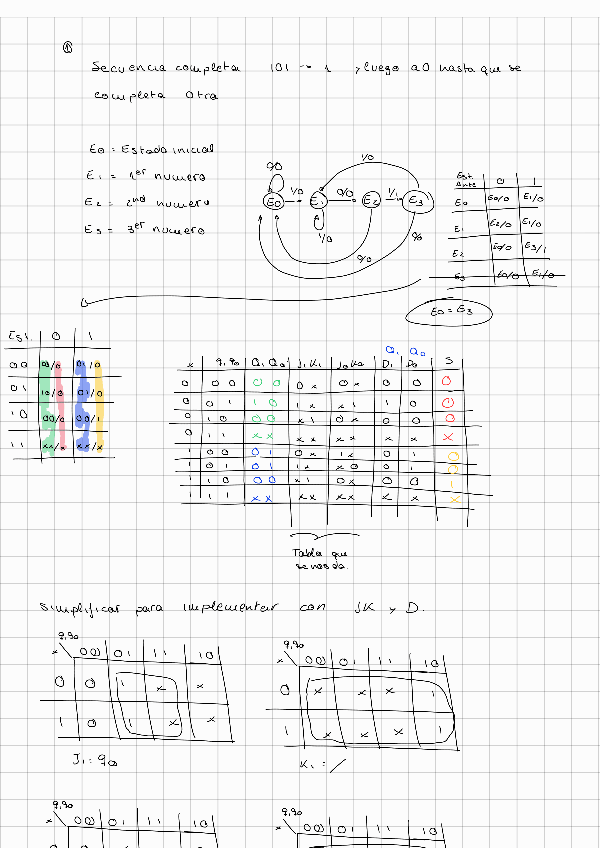 ①
Secuencia completa 101 → 1 , luego a 0 hasta que se
completa otra
E0 = Estado inicial
E1 = 1er numero
E2 = 2nd numero
E3 = 3er numero
0/0 1/0 0/0 1/1 1/0
E0 E1 E2 E3
1/0 0/0 0/0
Est. Ante 0 1
E0 E0/0 E1/0
E1 E2/0 E1/0
E2 E0/0 E3/1
E3 E0/0 E1/0
E0 = E3
Est. 0 1
00 00/0 01/0
01 10/0 01/0
10 00/0 00/1
11 xx/x xx/x
Q1 Q0
x q1q0 Q1 Q0 J1K1 J0K0 D1 D0 S
0 00 00 0x 0x 0 0 0
0 01 10 1x x1 1 0 0
0 10 00 x1 0x 0 0 0
0 11 xx xx xx x x x
1 00 01 0x 1x 0 1 0
1 01 01 1x x0 0 1 0
1 10 00 x1 0x 0 0 1
1 11 xx xx xx x x x
Tabla que
se nos da.
Simplificar para implementar con JK y D.
q1q0 q1q0
x 00 01 11 10 x 00 01 11 10
0 0 1 x x 0 x x x 1
1 0 1 x x 1 x x x 1
J1 = q0 K1 = /
q1q0 q1q0
x 00 01 11 10 x 00 01 11 10